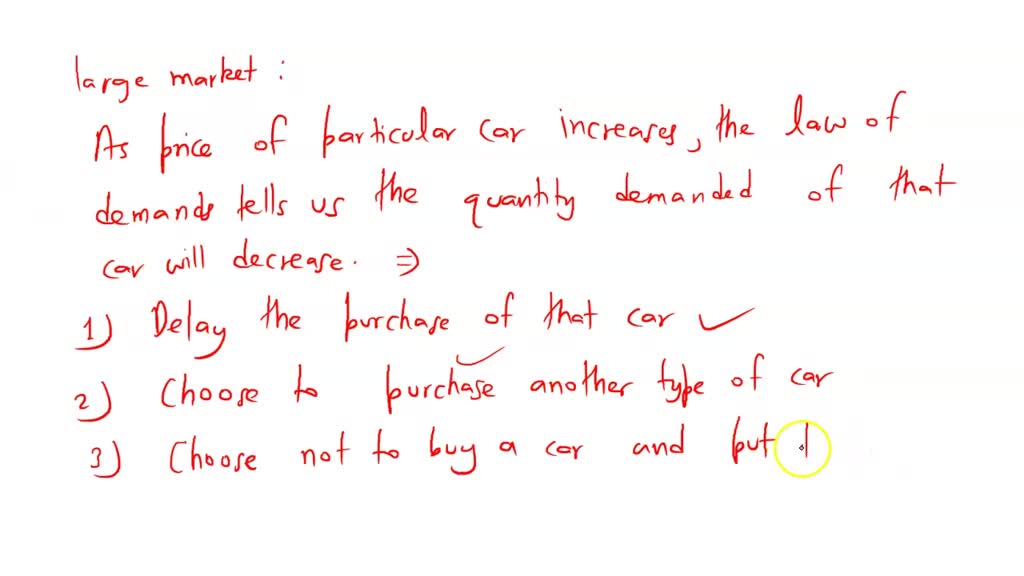 large market :
As price of particular car increases, the law of
demands tells us the quantity demanded of that
car will decrease. ⇒
1) Delay the purchase of that car ✓
2) Choose to purchase another type of car
3) Choose not to buy a car and put